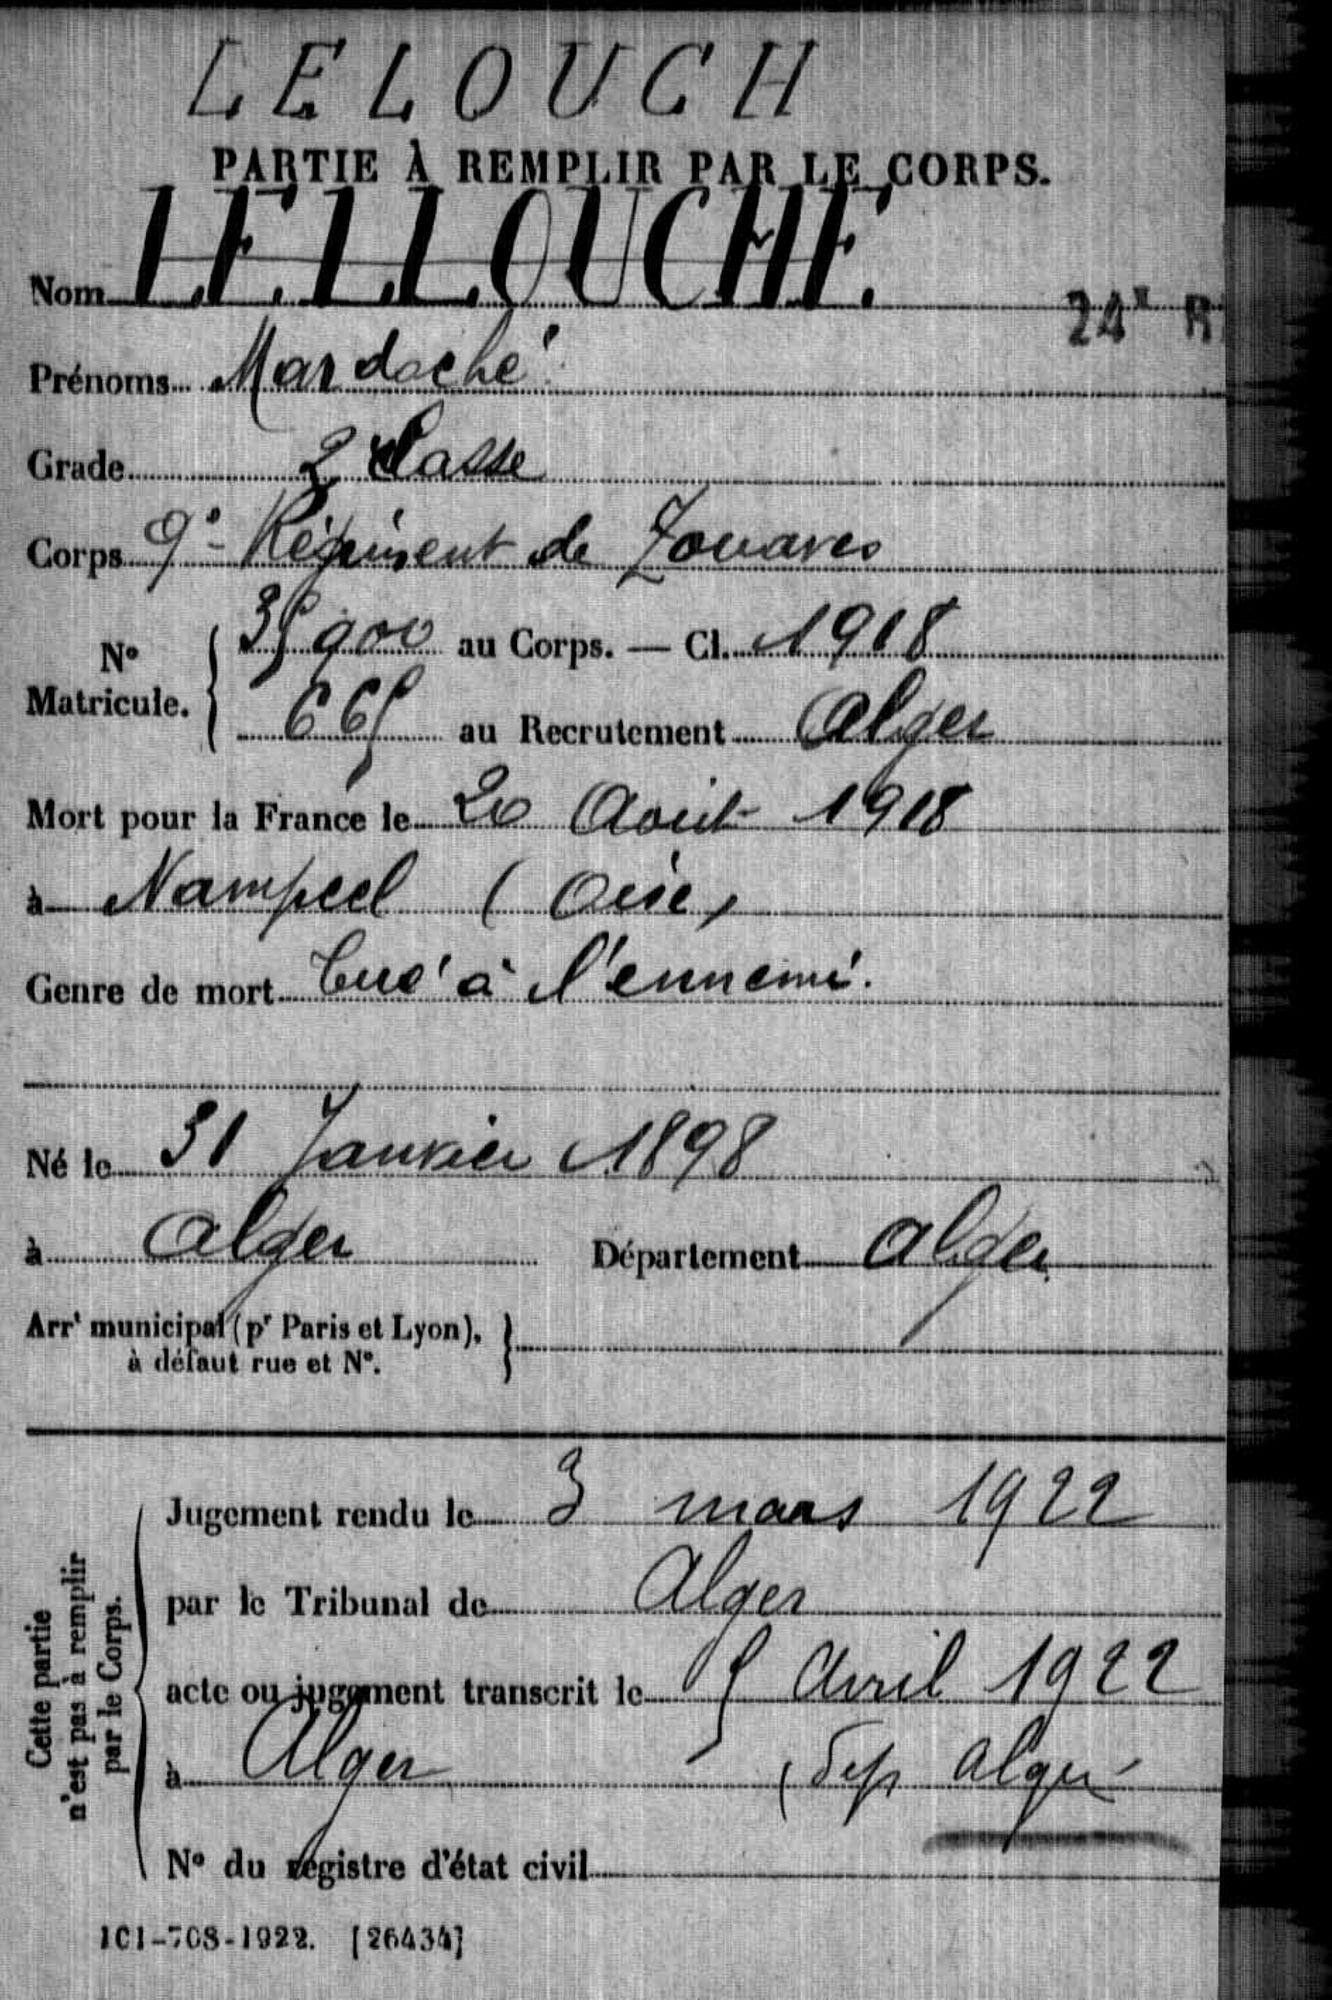 LELOUCH
PARTIE À REMPLIR PAR LE CORPS.
Nom LELLOUCHE.
24e R
Prénoms Mardoché
Grade 2 Classe
Corps 9e Régiment de Zouaves
No Matricule. { 35900 au Corps. — Cl. 1918
665 au Recrutement Alger
Mort pour la France le 20 Août 1918
à Nampcel (Oise)
Genre de mort Tué à l'ennemi.
Né le 31 Janvier 1898
à Alger Département Alger
Arrt municipal (pr Paris et Lyon), }
à défaut rue et No.
Cette partie n'est pas à remplir par le Corps.
Jugement rendu le 3 mars 1922
par le Tribunal de Alger
acte ou jugement transcrit le 5 Avril 1922
à Alger (Dep Alger
No du registre d'état civil
101-708-1922. [26434]